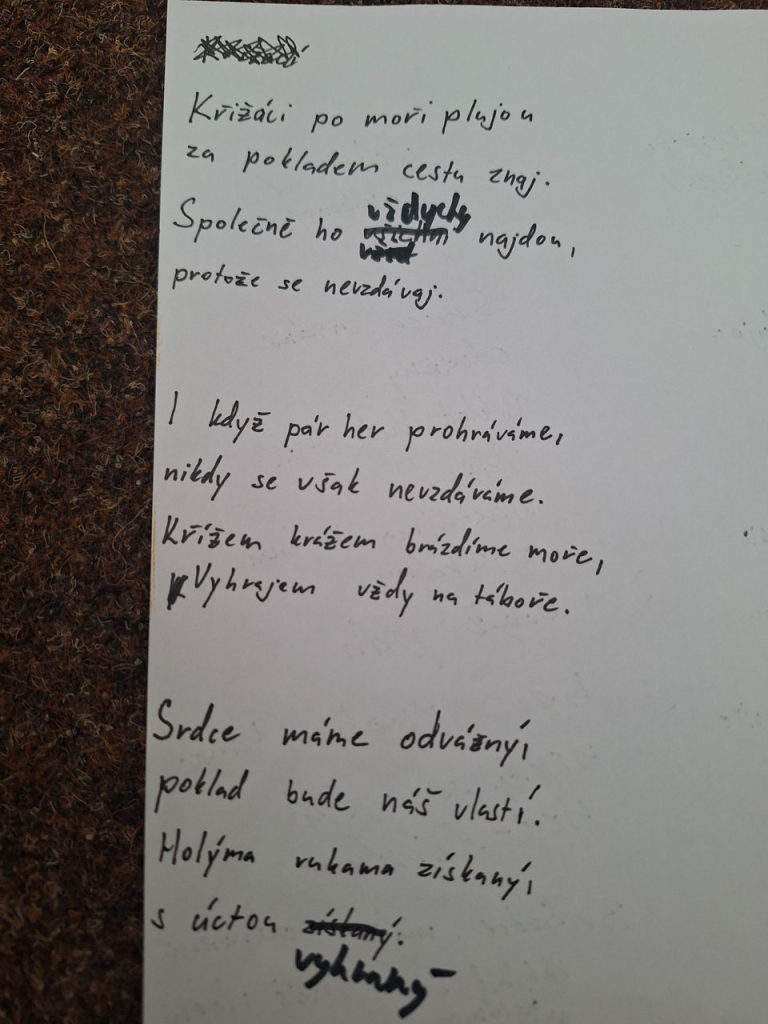 Křižáci po moři plujou
za pokladem cestu znaj.
Společně ho vždycky najdou,
protože se nevzdávaj.
I když pár her prohráváme,
nikdy se však nevzdáváme.
Křížem krážem brázdíme moře,
Vyhrajem vždy na táboře.
Srdce máme odvážný,
poklad bude náš vlastí.
Holýma rukama získaný,
s úctou získaný.
vyhraný